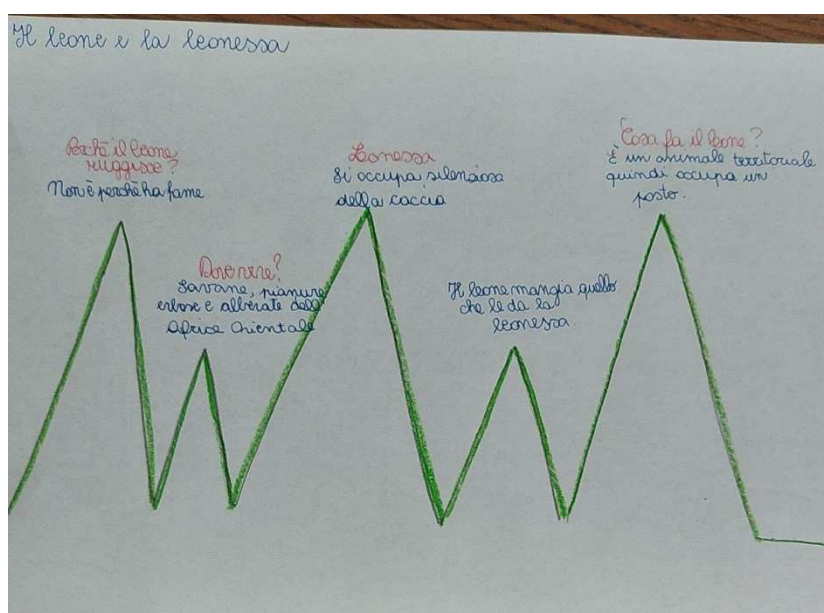 Il leone e la leonessa
Perché il leone
ruggisce?
Non è perché ha fame
Dove vive?
Savane, pianure
erbose e alberate dell
Africa Orientale
Leonessa
Si occupa silenziosa
della caccia
Il leone mangia quello
che le da la
leonessa.
Cosa fa il leone?
È un animale territoriale
quindi occupa un
posto.